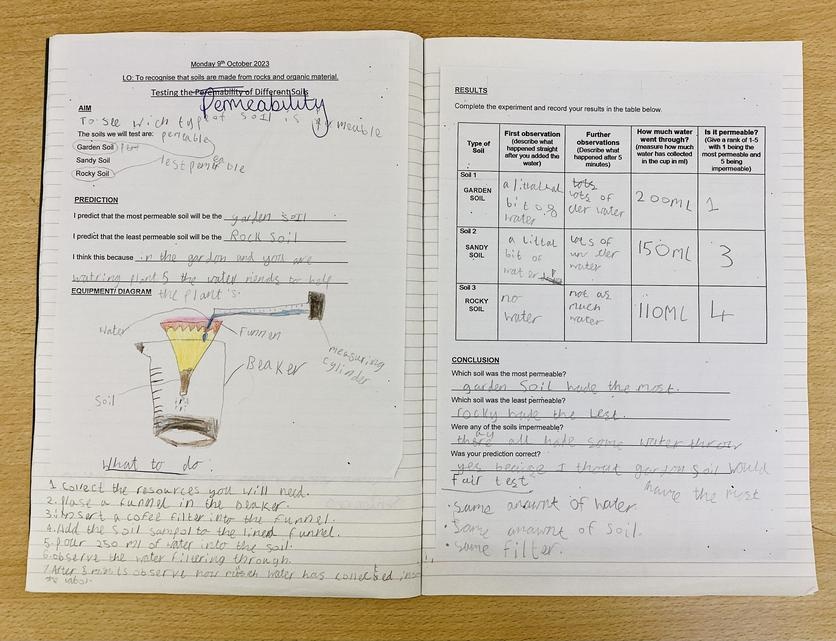 Monday 9th October 2023
LO: To recognise that soils are made from rocks and organic material.
Testing the Permability of Different Soils
Permeability
AIM
To see wich type of soil is permeable
The soils we will test are: permeable
Garden Soil
Sandy Soil
Rocky Soil
PREDICTION
I predict that the most permeable soil will be the garden soil
I predict that the least permeable soil will be the Rock Soil
I think this because in the garden and you are
watring plants the water nends to help
the plant's.
EQUIPMENT/ DIAGRAM
Water
Funnen
measuring cylinder
Beaker
Soil
What to do:
1 Collect the resources you will need.
2. Plase a funnel in the beaker.
3. insert a cofee filter into the funnel.
4. Add the soil sampol to the lined funnel.
5. pour 250 ml of water into the soil.
6. observe the water filtering through.
7. After 5 minits observe how much water has collected
RESULTS
Complete the experiment and record your results in the table below.
Type of Soil
First observation (describe what happened straight after you added the water)
Further observations (Describe what happened after 5 minutes)
How much water went through? (measure how much water has collected in the cup in ml)
Is it permeable? (Give a rank of 1-5 with 1 being the most permeable and 5 being impermeable)
Soil 1
GARDEN SOIL
bit of water
lots of cler water
200ML
1
Soil 2
SANDY SOIL
a littal bit of water
lots of un cler water
150ML
3
Soil 3
ROCKY SOIL
no water
not as much water
110ML
4
CONCLUSION
Which soil was the most permeable?
garden Soil hade the most.
Which soil was the least permeable?
rocky hade the lest.
Were any of the soils impermeable?
all hade some water throw
Was your prediction correct?
yes I thout garden soil would
have the most
fair test
• same amawnt of water.
• Same amawnt of soil.
• same filter.